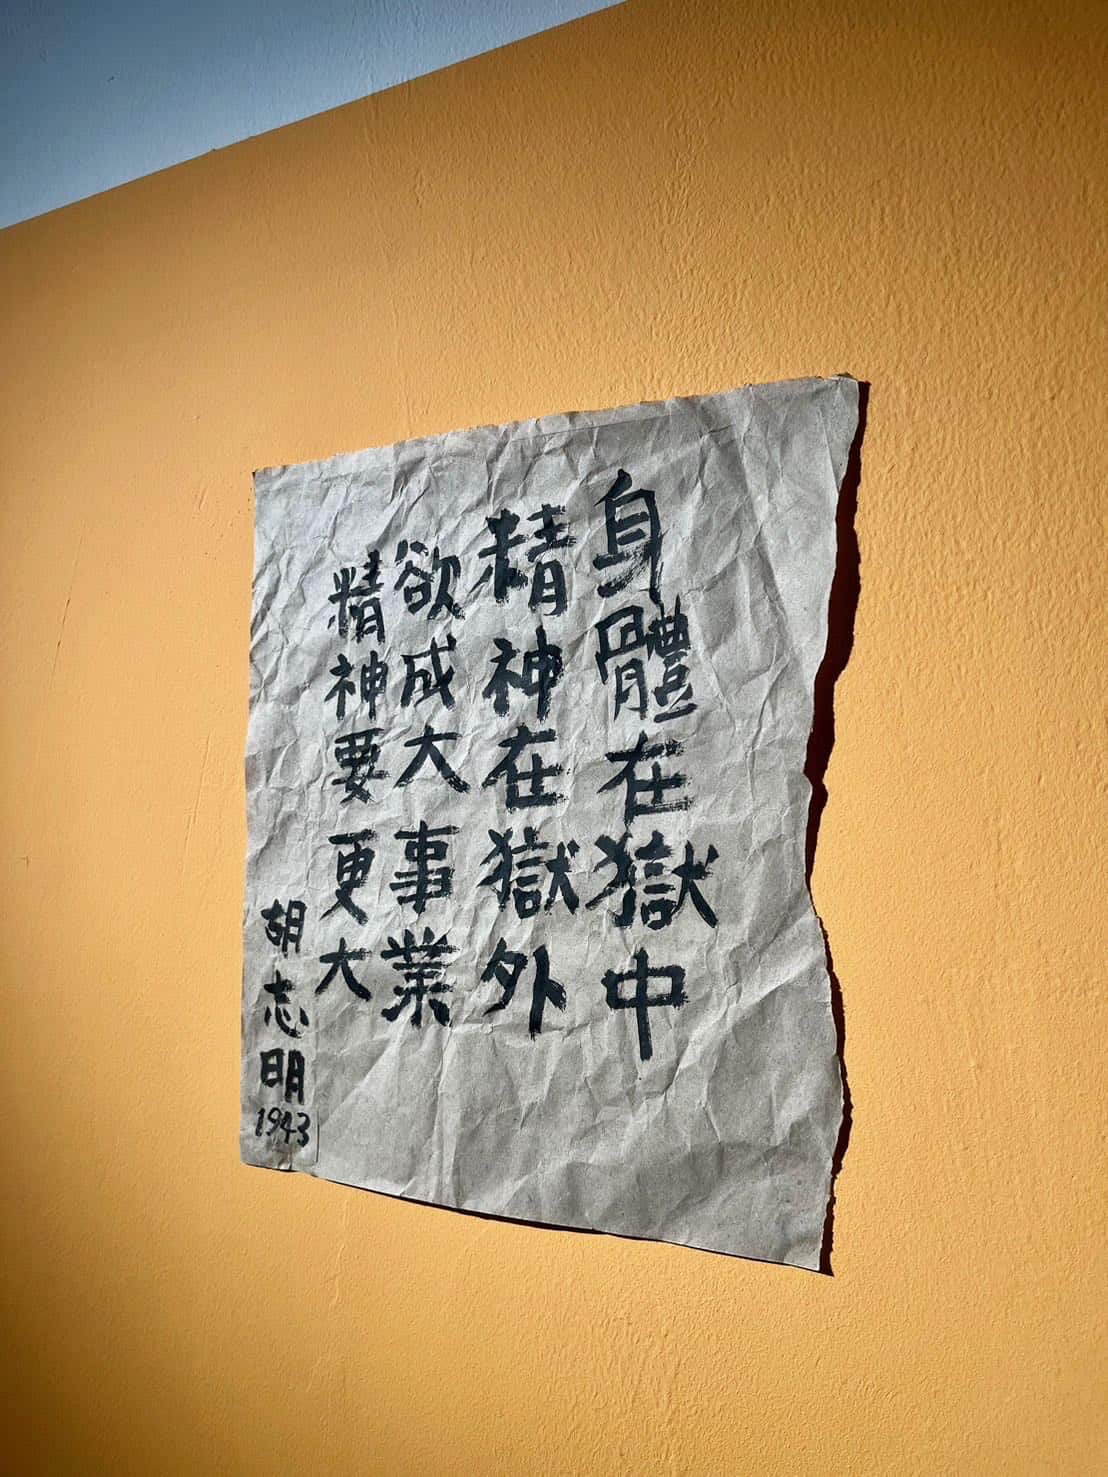 身體在獄中
精神在獄外
欲成大事業
精神要更大
胡志明
1943